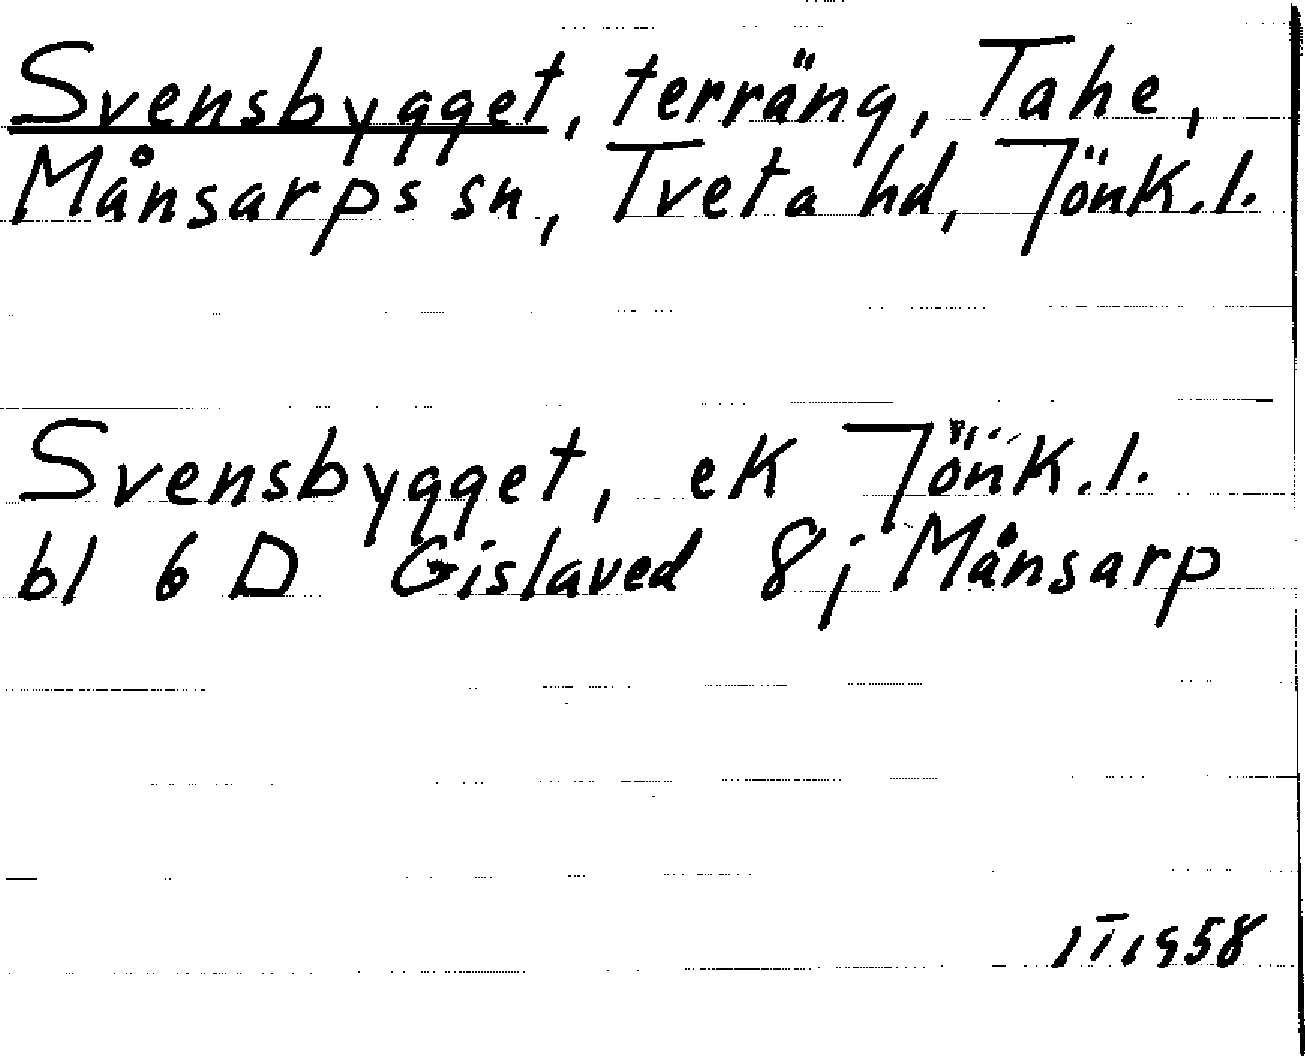 Svensbygget, terräng, Tahe,
Månsarps sn, Tveta hd, Jönk.l.
Svensbygget, ek Jönk.l.
bl 6 D Gislaved 8j Månsarp
1958